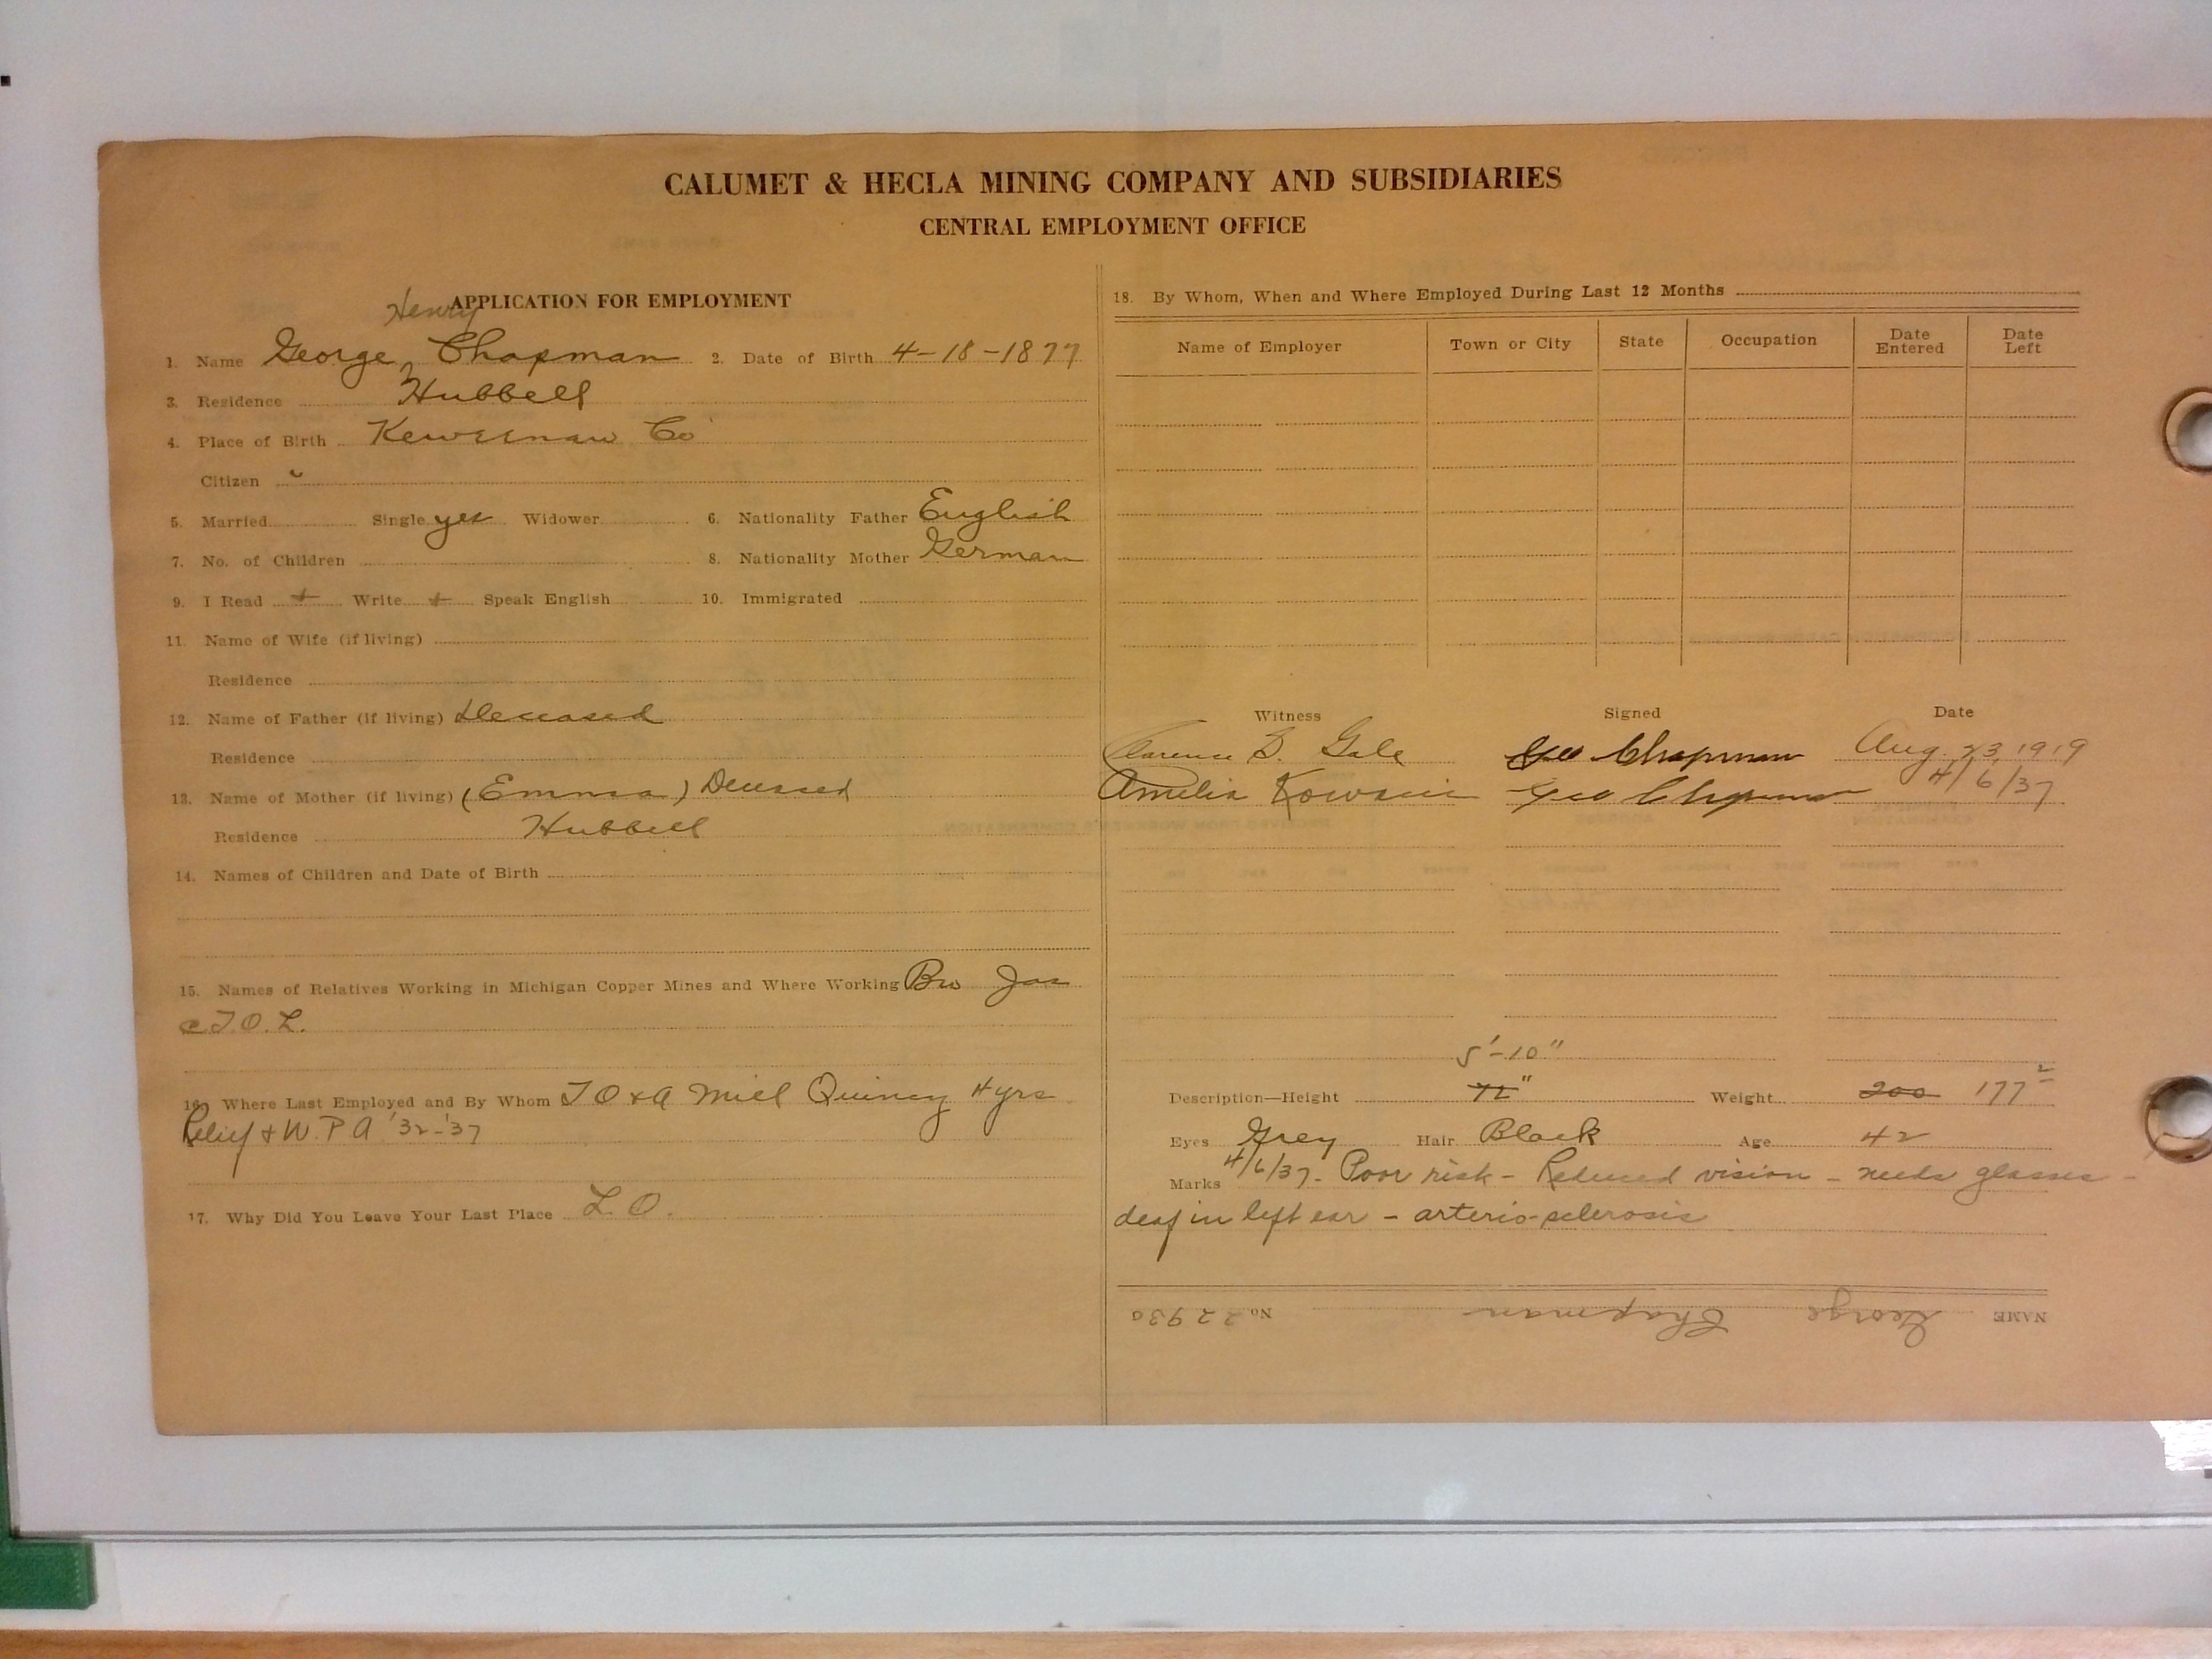 CALUMET & HECLA MINING COMPANY AND SUBSIDIARIES
CENTRAL EMPLOYMENT OFFICE
APPLICATION FOR EMPLOYMENT
Henry
1. Name George Chapman 2. Date of Birth 4-18-1877
3. Residence Hubbell
4. Place of Birth Keweenaw Co
Citizen "
5. Married Single yes Widower 6. Nationality Father English
7. No. of Children 8. Nationality Mother German
9. I Read + Write + Speak English 10. Immigrated
11. Name of Wife (if living)
Residence
12. Name of Father (if living) Deceased
Residence
13. Name of Mother (if living) (Emma) Deceased
Residence Hubbell
14. Names of Children and Date of Birth
15. Names of Relatives Working in Michigan Copper Mines and Where Working Bro Jas
@ T. O. L.
16. Where Last Employed and By Whom T O & a Mill Quincy 4 yrs
Relief & W. P. A '32-'37
17. Why Did You Leave Your Last Place L. O.
18. By Whom, When and Where Employed During Last 12 Months
Name of Employer Town or City State Occupation Date Entered Date Left
Witness Signed Date
Clarence S. Gale Geo Chapman Aug. 23, 1919
Amelia Geo Chapman 4/6/37
5'-10"
Description—Height 72" Weight 200 177
Eyes Grey Hair Black Age 42
Marks 4/6/37 - Poor risk - Reduced vision - needs glasses -
deaf in left ear - arterio-sclerosis
NAME George Chapman No 22930